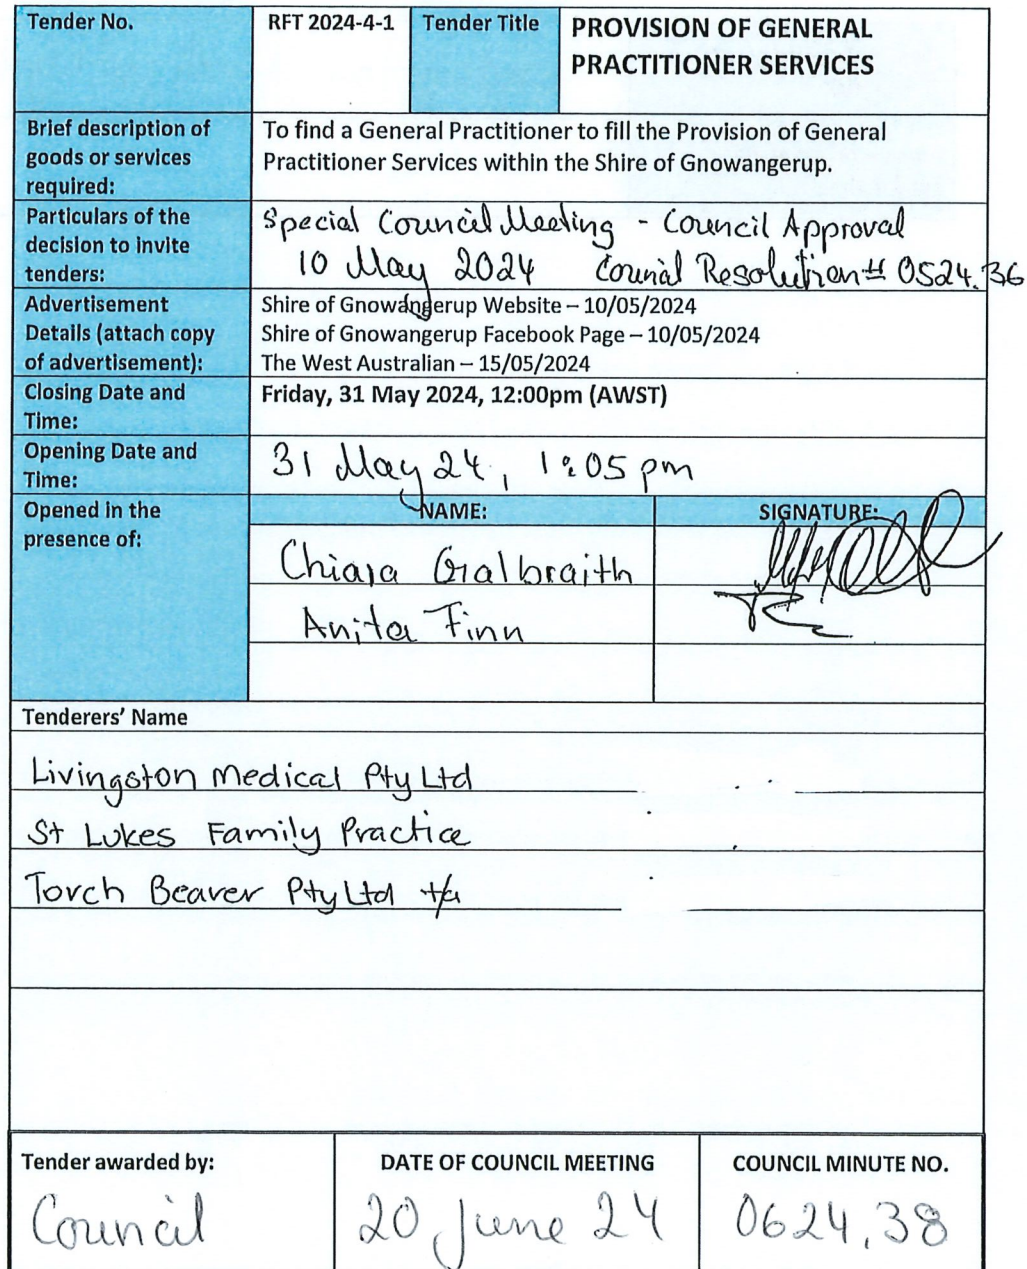 Tender No.
RFT 2024-4-1
Tender Title
PROVISION OF GENERAL
PRACTITIONER SERVICES
Brief description of
goods or services
required:
To find a General Practitioner to fill the Provision of General
Practitioner Services within the Shire of Gnowangerup.
Particulars of the
decision to invite
tenders:
Special Council Meeting - Council Approval
10 May 2024 Council Resolution # 0524.36
Advertisement
Details (attach copy
of advertisement):
Shire of Gnowangerup Website – 10/05/2024
Shire of Gnowangerup Facebook Page – 10/05/2024
The West Australian – 15/05/2024
Closing Date and
Time:
Friday, 31 May 2024, 12:00pm (AWST)
Opening Date and
Time:
31 May 24, 1:05 pm
Opened in the
presence of:
NAME:
SIGNATURE:
Chiara Galbraith
Anita Finn
Tenderers' Name
Livingston Medical Pty Ltd
St Lukes Family Practice
Torch Beaver Pty Ltd t/a
Tender awarded by:
DATE OF COUNCIL MEETING
COUNCIL MINUTE NO.
Council
20 June 24
0624.38